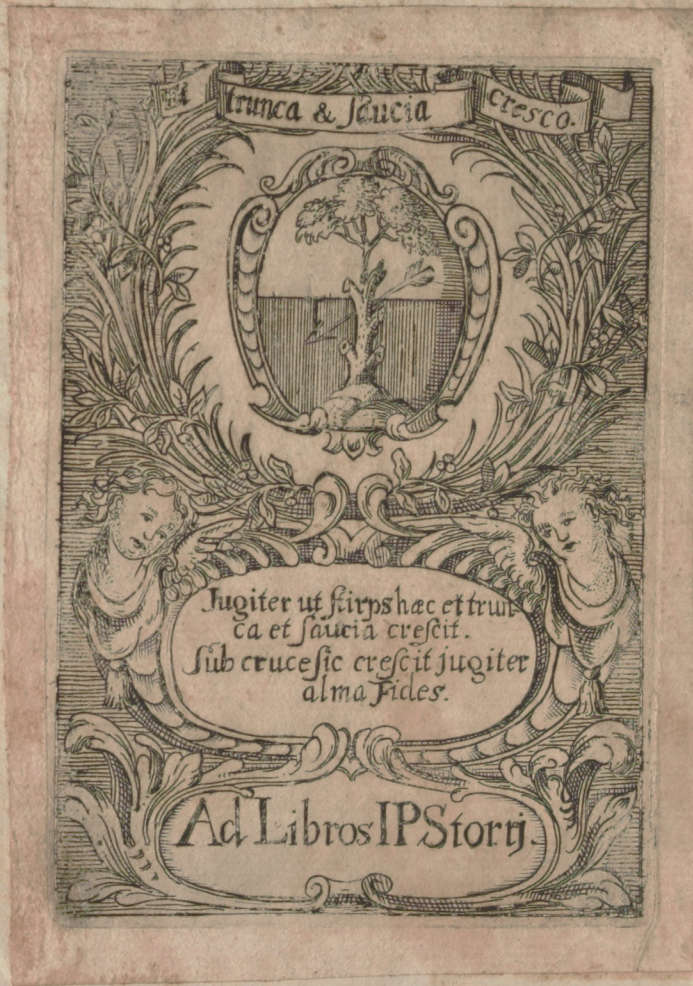 Et trunca & saucia cresco.
Jugiter ut stirps hæc et trun-
ca et saucia crescit.
Sub cruce sic crescit jugiter
alma Fides.
Ad Libros IPStorij.